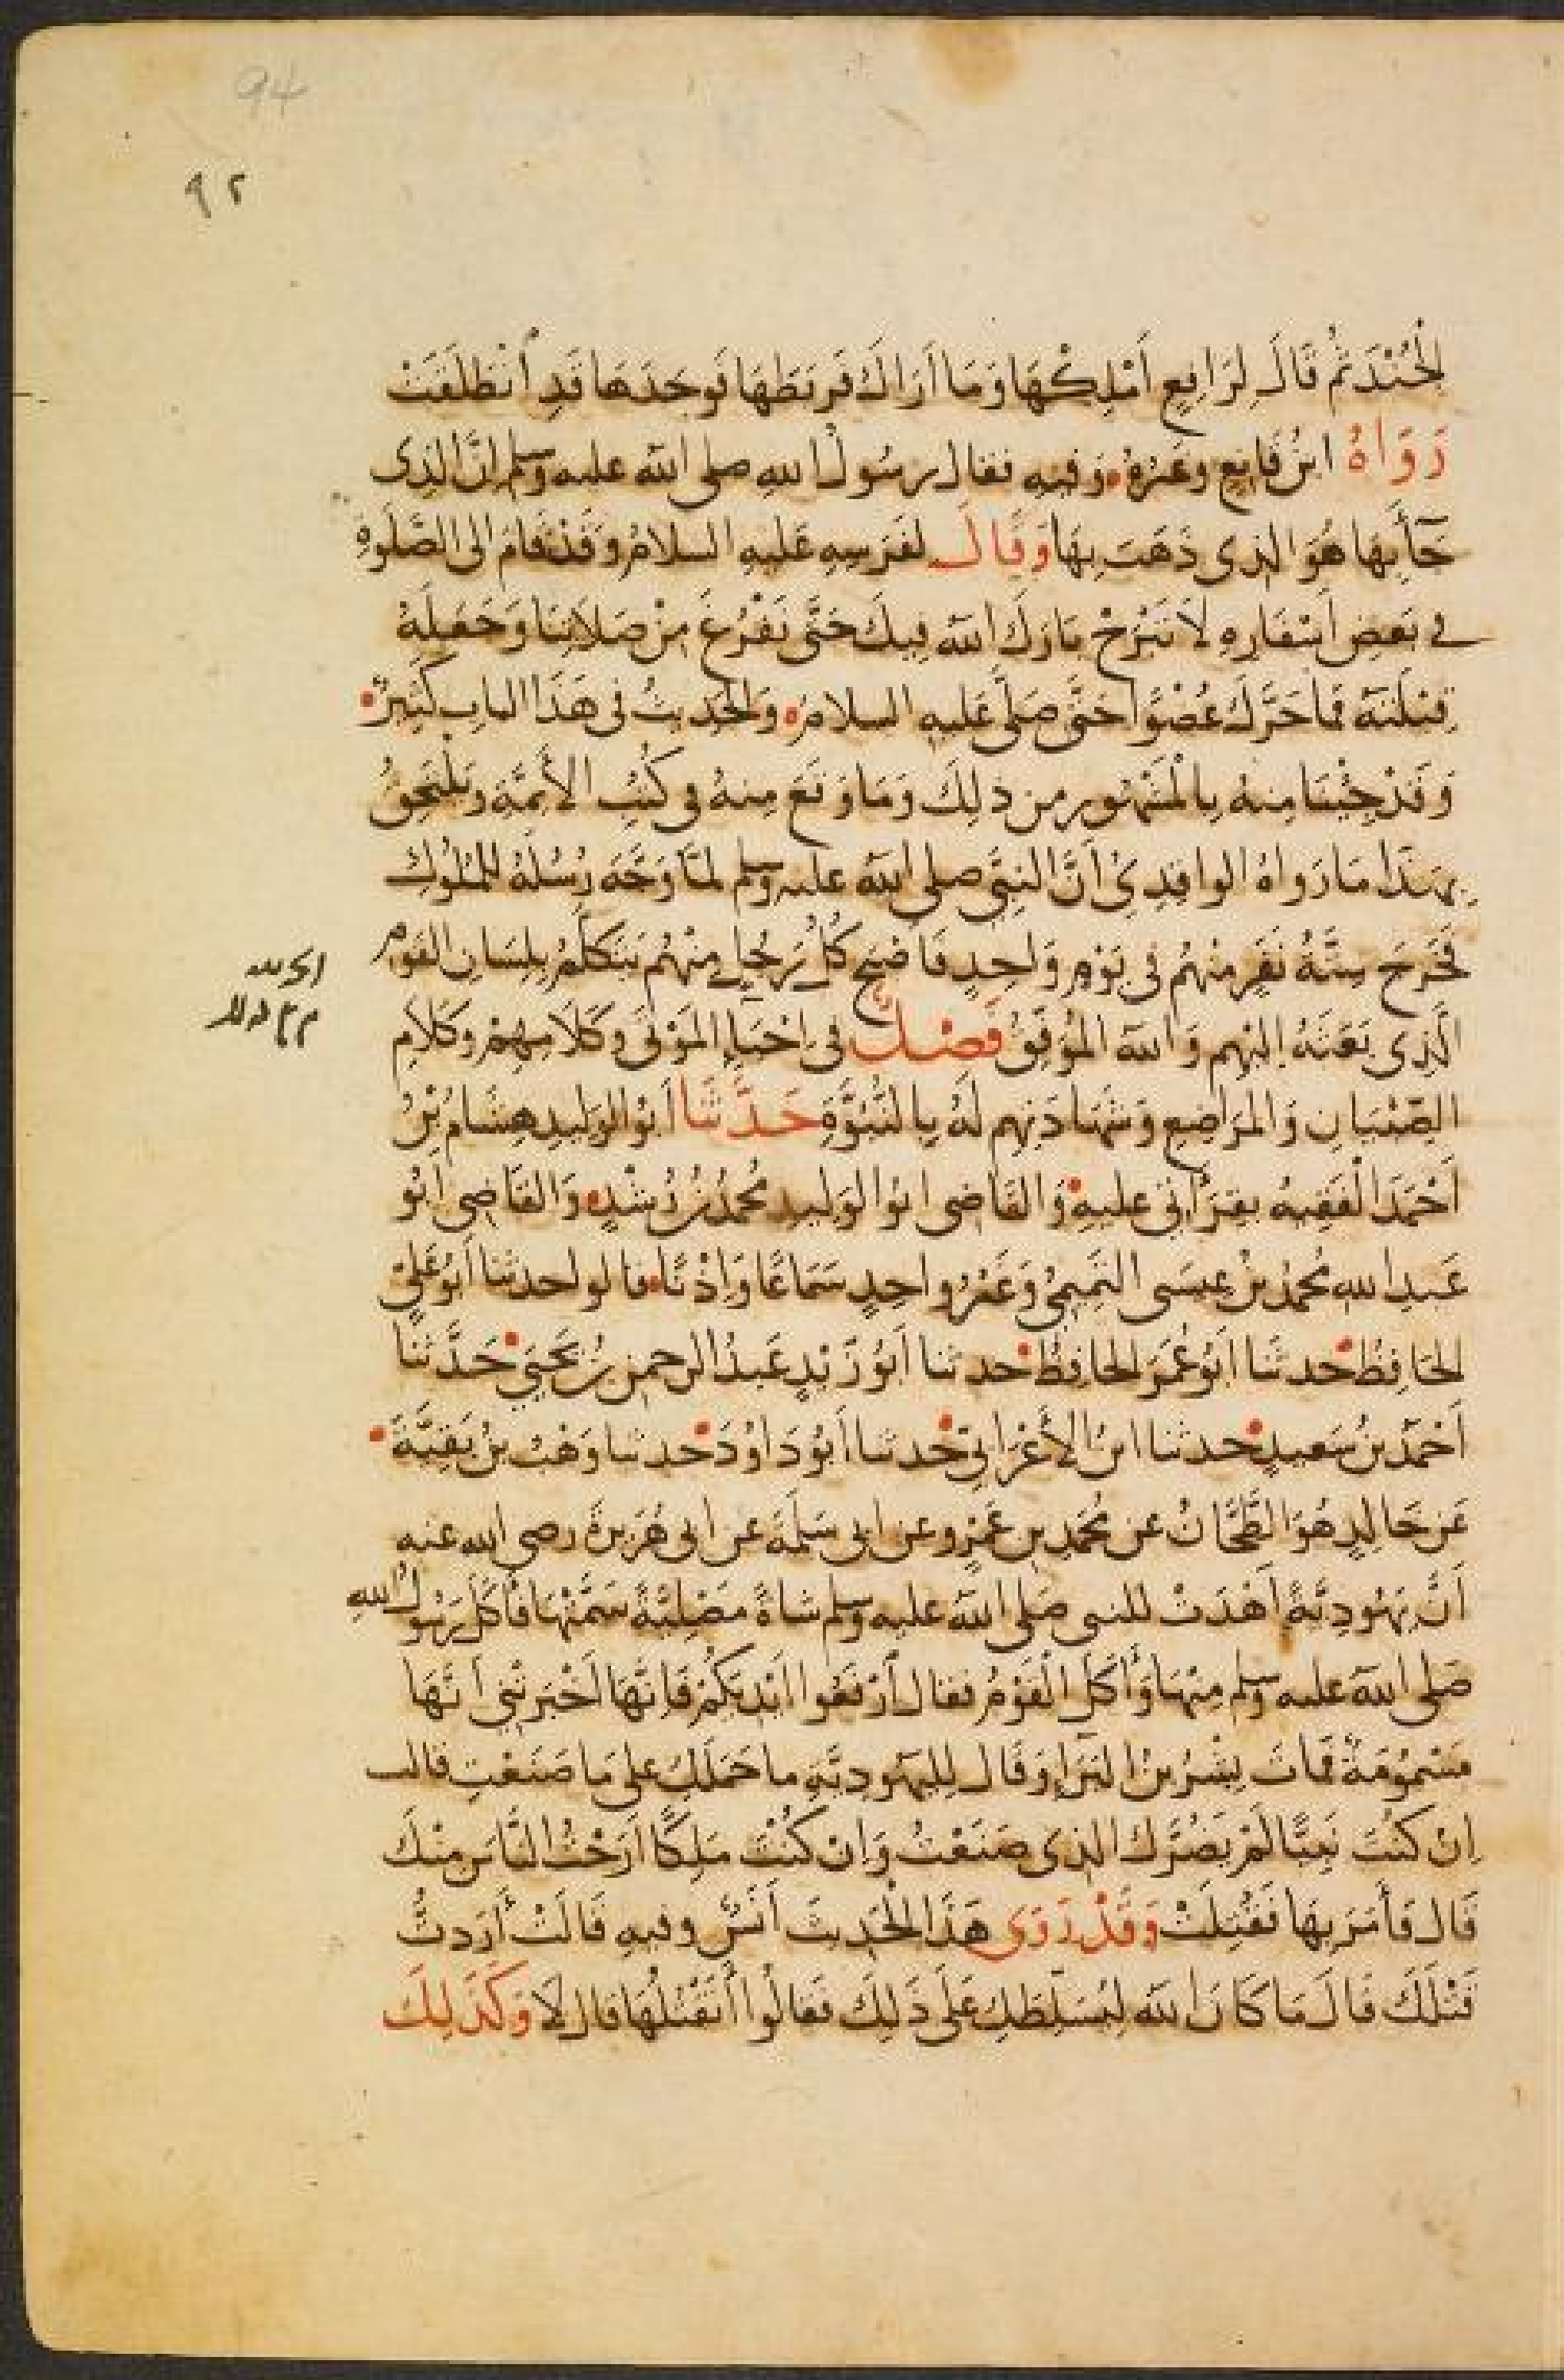 94
٩٢
الجُنْدَ ثُمَّ قَالَ لِرَافِعٍ أَمْلِكْهَا وَمَا أَرَاكَ فَرَبَطَهَا فَوَجَدَهَا قَدِ انْطَلَقَتْ
رَوَاهُ ابْنُ قَانِعٍ وغَيْرُهُ وَفِيهِ فقال رسُولُ اللهِ صلى الله عليه وسلم إنَّ الذِى
جَاءَ بِهَا هُوَ الذِى ذَهَبَ بِهَا وَقَالَ لفَرَسِهِ عَلَيهِ السلامُ وَقَدْ قَامَ الى الصَّلَوةِ
فى بَعضِ أَسْفَارِهِ لَا تَبْرَحْ بَارَكَ اللهُ فِيكَ حَتَّى نَفْرُغَ مِنْ صَلَاتِنَا وَجَعَلَهُ
قِبْلَتَهُ فَمَا حَرَّكَ عُضْوًا حَتَّى صَلَّى عَلَيهِ السلامُ وَالحَدِيثُ فى هَذَا البابِ كَثِيرٌ
وَقَدْ جِئْنَا مِنهُ بِالْمَشْهُورِ من ذلِكَ وَمَا وَقَعَ مِنهُ فى كُتُبِ الأَئِمَّةِ وَيَلْتَحِقُ
بِهَذَا مَا رَوَاهُ الوَاقِدِىُّ أَنَّ النَّبِىَّ صلى الله عليه وسلم لمَّا وَجَّهَ رُسُلَهُ للمُلُوكِ
فَخَرَجَ سِتَّةُ نَفَرٍ مِنْهُم فى يَوْمٍ وَاحِدٍ فَأَصْبَحَ كُلُّ رَجُلٍ مِنْهُم يَتَكَلَّمُ بِلِسَانِ القَوْمِ
الَّذِى بَعَثَهُ إِلَيْهِم وَاللهُ المُوَفِّقُ فَصْلٌ فى إِحْيَاءِ المَوْتَى وكَلَامِهِمْ وكَلَامِ
الصِّبْيَانِ وَالمَرَاضِعِ وَشَهَادَتِهِم لَهُ بِالنُّبُوَّةِ حَدَّثَنَا أَبُو الوَلِيدِ هِشَامُ بْنُ
أَحْمَدَ الْفَقِيهُ بقِرَاءَتِى عليهِ وَالقَاضِى ابُو الوَلِيدِ مُحَمَّدُ بْنُ رُشْدٍ وَالقَاضِى ابُو
عَبدِ اللهِ مُحَمَّدُ بْنُ عِيسَى التَّمِيمِىُّ وَغَيْرُ وَاحِدٍ سَمَاعًا وَإِذْنًا قالوا حدثنا أَبُو عَلِىٍّ
الحَافِظُ حدثَنَا أَبُو عُمَرَ الحافِظُ حدثنا أَبُو زَيْدٍ عَبدُ الرحمنِ بْنُ يَحْيَى حَدَّثَنَا
أَحْمَدُ بنُ سَعِيدٍ حدثنا ابنُ الأَعْرَابِىِّ حدثنا أَبُو دَاوُدَ حدثنا وَهْبُ بنُ بَقِيَّةَ
عَن خَالِدٍ هُوَ الطَّحَّانُ عن مُحَمَّدِ بنِ عَمْرٍو عن ابى سَلَمَةَ عن ابى هُرَيرَةَ رضى الله عنه
أَنَّ يَهُودِيَّةً أَهْدَتْ للنبى صَلى الله عليه وسلم شاةً مَصْلِيَّةً سَمَّتْهَا فَأَكَلَ رَسُولُ اللهِ
صَلى اللهُ عليه وسلم مِنْهَا وَأَكَلَ الْقَوْمُ فقال ارْفَعُوا أَيْدِيَكُمْ فَإِنَّهَا أَخْبَرَتْنِى أَنَّهَا
مَسْمُومَةٌ فَمَاتَ بِشْرُ بنُ البَرَاءِ وَقَالَ لِليَهُودِيَّةِ ما حَمَلَكِ على مَا صَنَعْتِ قالت
إِنْ كُنْتَ نَبِيًّا لَمْ يَضُرَّكَ الذِى صَنَعْتُ وَإِنْ كُنْتَ مَلِكًا أَرَحْتُ النَّاسَ مِنْكَ
قَالَ فَأَمَرَ بِهَا فَقُتِلَتْ وَقَدْ رَوَى هَذَا الْحَدِيثَ أَنَسٌ وفِيهِ قَالَتْ أَرَدتُ
قَتْلَكَ قَالَ مَا كَانَ اللهُ لِيُسَلِّطَكِ عَلَى ذَلِكَ فَقَالُوا أَنَقْتُلُهَا قال لَا وَكَذَلِكَ